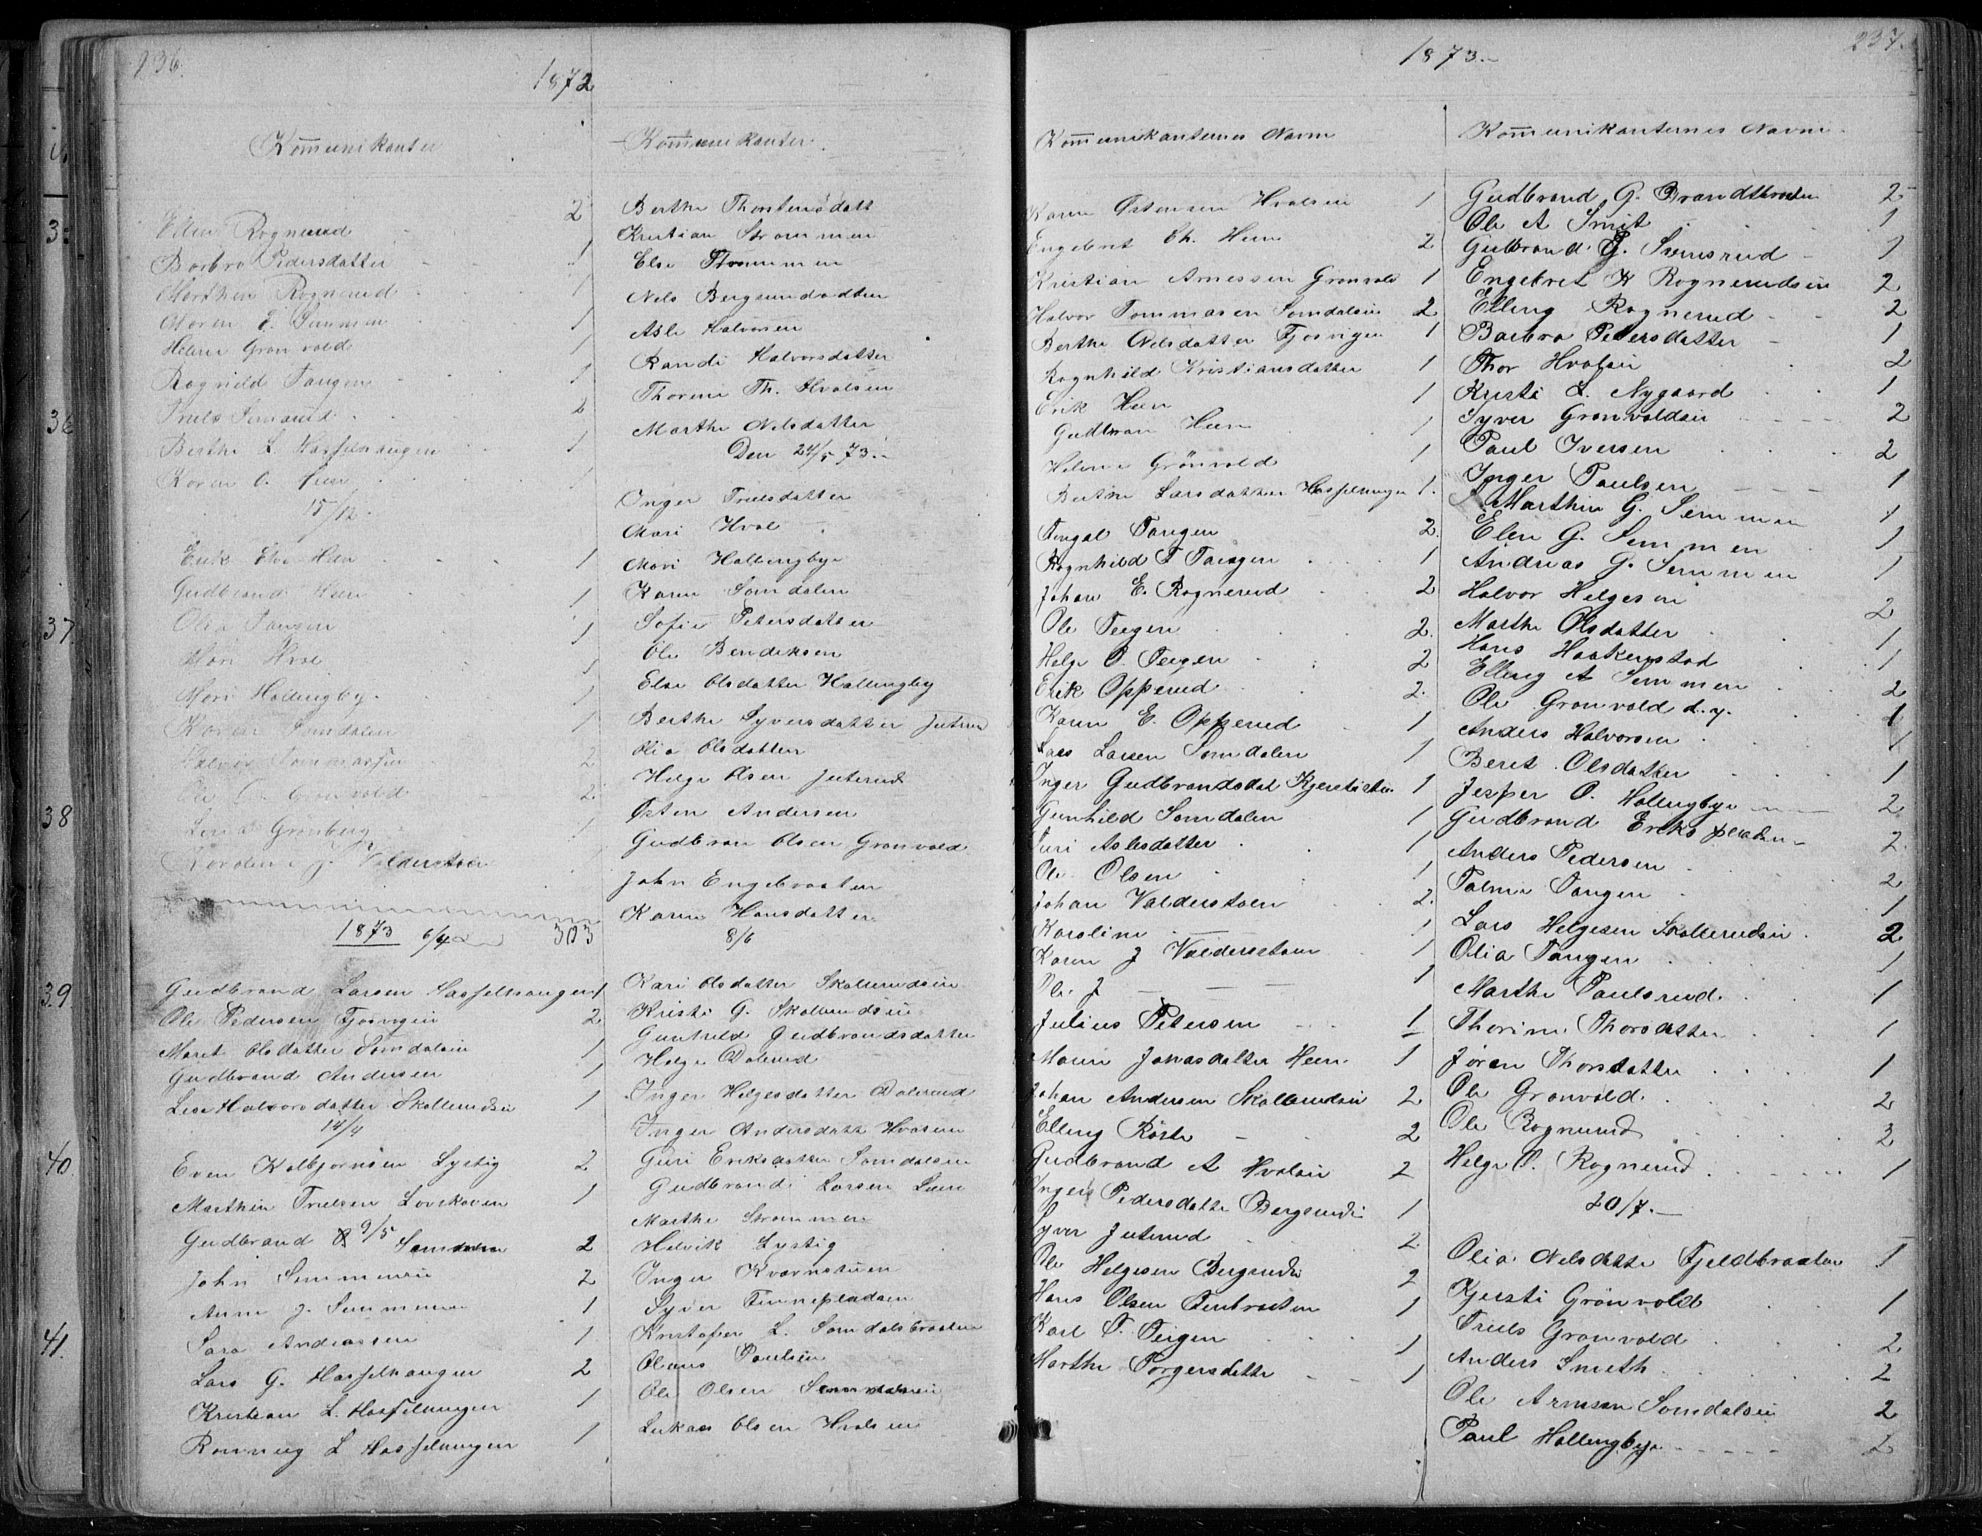 236.
1872
Kommunikanter
Rognerud 2
Barbro Pedersdatter 1
Marthea Rognerud 1
Maren E. Semmen 1
Helene Grönvold 1
Ragnild Tangen 1
Truls Semmerud 2
Berthe L Hasselhaugen 1
Karen O. Heen 1
15/12.
Erik Heen 1
Gudbrand Heen 1
Olia Tangen 1
Mari Hval 1
Mari Hallingby 1
Karen Somdalen 1
Halvor Tommassen 2
Ole G. Grönvold 2
Lina Grönberg 1
Karoline J. Valderstoen
1873 6/4 303
Gudbrand Larsen Hasselhaugen 1
Ole Pedersen Fjosvigen 2
Marit Olsdatter Somdalsei 1
Gudbrand Andersen 1
Lise Halvorsdatter Skollerudsei 1
14/4
Even Kolbjørnsen Lystig 2
Marthin Trulsen Lovskoven 1
Gudbrand 9/5 Somdalen 2
John Semmensei 2
Anne J. Semmensei 1
Sara Andreassen 1
Lars G. Hasselhaugen 2
Kristian L. Hasselhaugen 1
Ronnug L Hasselhaugen 1
Kommunikanter.
Berthe Thorstensdatt
Kristian Strommen
Else Strommen
Nils Bergsundodden
Asle Halvorsen
Randi Halvorsdatter
Thorine Th. Hvalsen
Marthe Nilsdatter
Den 24/5 73.-
Inger Trulsdatter
Mari Hval
Mari Hallingbye
Karen Somdalen
Sofie Petersdatter
Ole Bendiksen
Else Olsdatter Hallingby
Berthe Syversdatter Juterud
Olia Olsdatter
Helge Olsen Juterud
Østen Andersen
Gudbran Olsen Gronvold
John Engebraaten
Karen Hansdatter
8/6
Kari Olsdatter Skollerudsein
Kristi G. Skollerudsein
Gunhild Gudbrandsdatter
Helge Dalerud
Inger Helgesdatter Dalerud
Inger Andersdatt Hvalsein
Guri Eriksdatter Somdalsein
Gudbrand Larsen Lien
Marthe Strommen
Helvik Lystig
Inger Kvernstuen
Syver Finnepladsen
Kristofer L. Somdalsbraaten
Olaus Paulsen
Ole Olsen Somdalsein
Lukas Olsen Hvalsen
1873.-
237.
Kommunikanternes Navne
Karen Østensen Hvalsein 1
Engebret Ch. Heen 2
Kristian Arnessen Gronvold 1
Halvor Tommasen Somdalsei 2
Berthe Nilsdatter Fjosvigen 1
Rognhild Kristiansdatter 1
Erik Heen 1
Gudbran Heen 1
Helene Grönvold 1
Berthe Larsdatter Hasselhaugen 1.
Fingal Tangen 2.
Rognhild T Tangen 1
Johan E. Rognerud 2
Ole Teigen 2.
Helge O. Teigen 2
Erik Opperud 2.
Karen E. Opperud 1
Lars Larsen Somdalen 1
Inger Gudbrandsdat Kjerstistuen 1
Gunhild Somdalen 1
Turi Aslesdatter 1
Ole Olsen 1
Johan Valderstoen 2.
Karoline — 1
Karen J Valderstoen 1
Ole J — — — 1
Julius Petersen 1
Maren Jonasdatter Heen 1
Johan Andersen Skollerudsei 2
Elling Röste 2
Gudbrand A Hvalsei 2
Inger Pedersdatte Bergsund 1
Syver Juterud 2.
Ole Helgesen Bergsund 2
Hans Olsen Tenbraaten 1
Karl O. Teigen 1
Marthe Torgersdatte 1
Kommunikanternes Navne
Gudbrand G. Brandtbraaten 2
Ole A Smit 1
Gulbrand G. Semsrud 1
Engebret K Rognerudsein 2
Elling Rognerud 2
Barbro Petersdatter 1
Thor Hvalsei 2
Kristi L. Nygaard 1
Syver Gronvoldsei 2
Paul Iversen 2
Inger Paulsen 1
Marthin G. Semmen 1
Elen G. Semmen 1
Andreas G. Semmen 1
Halvor Helgesen 2
Marthe Olsdatter 1
Hans Haakenstad 1
Elling A Semmen 2
Ole Gronvold d.y. 1
Anders Halvorsen 1
Beret Olsdatter 1
Jesper O. Hallingbye 2
Gudbrand Erikspladsen 2
Anders Pedersen 2
Palme Tangen 1
Lars Helgesen Skollerudsei. 2
Olia Tangen 1
Marthe Paulsrud. 1
Thorine Thorsdatter 1
Jøran Thorsdatter 1
Ole Gronvold. 2
Ole Rognerud 2
Helge O. Rognerud 1
20/7.—
Olia Nilsdatte Fjeldbraaten 1
Kjersti Grönvold 1
Truls Gronvold 2
Anders Smith 2
Ole Arnesen Somdalsei 2
Paul Hallingbye 2
35
36
37.
38
39.
40.
41.